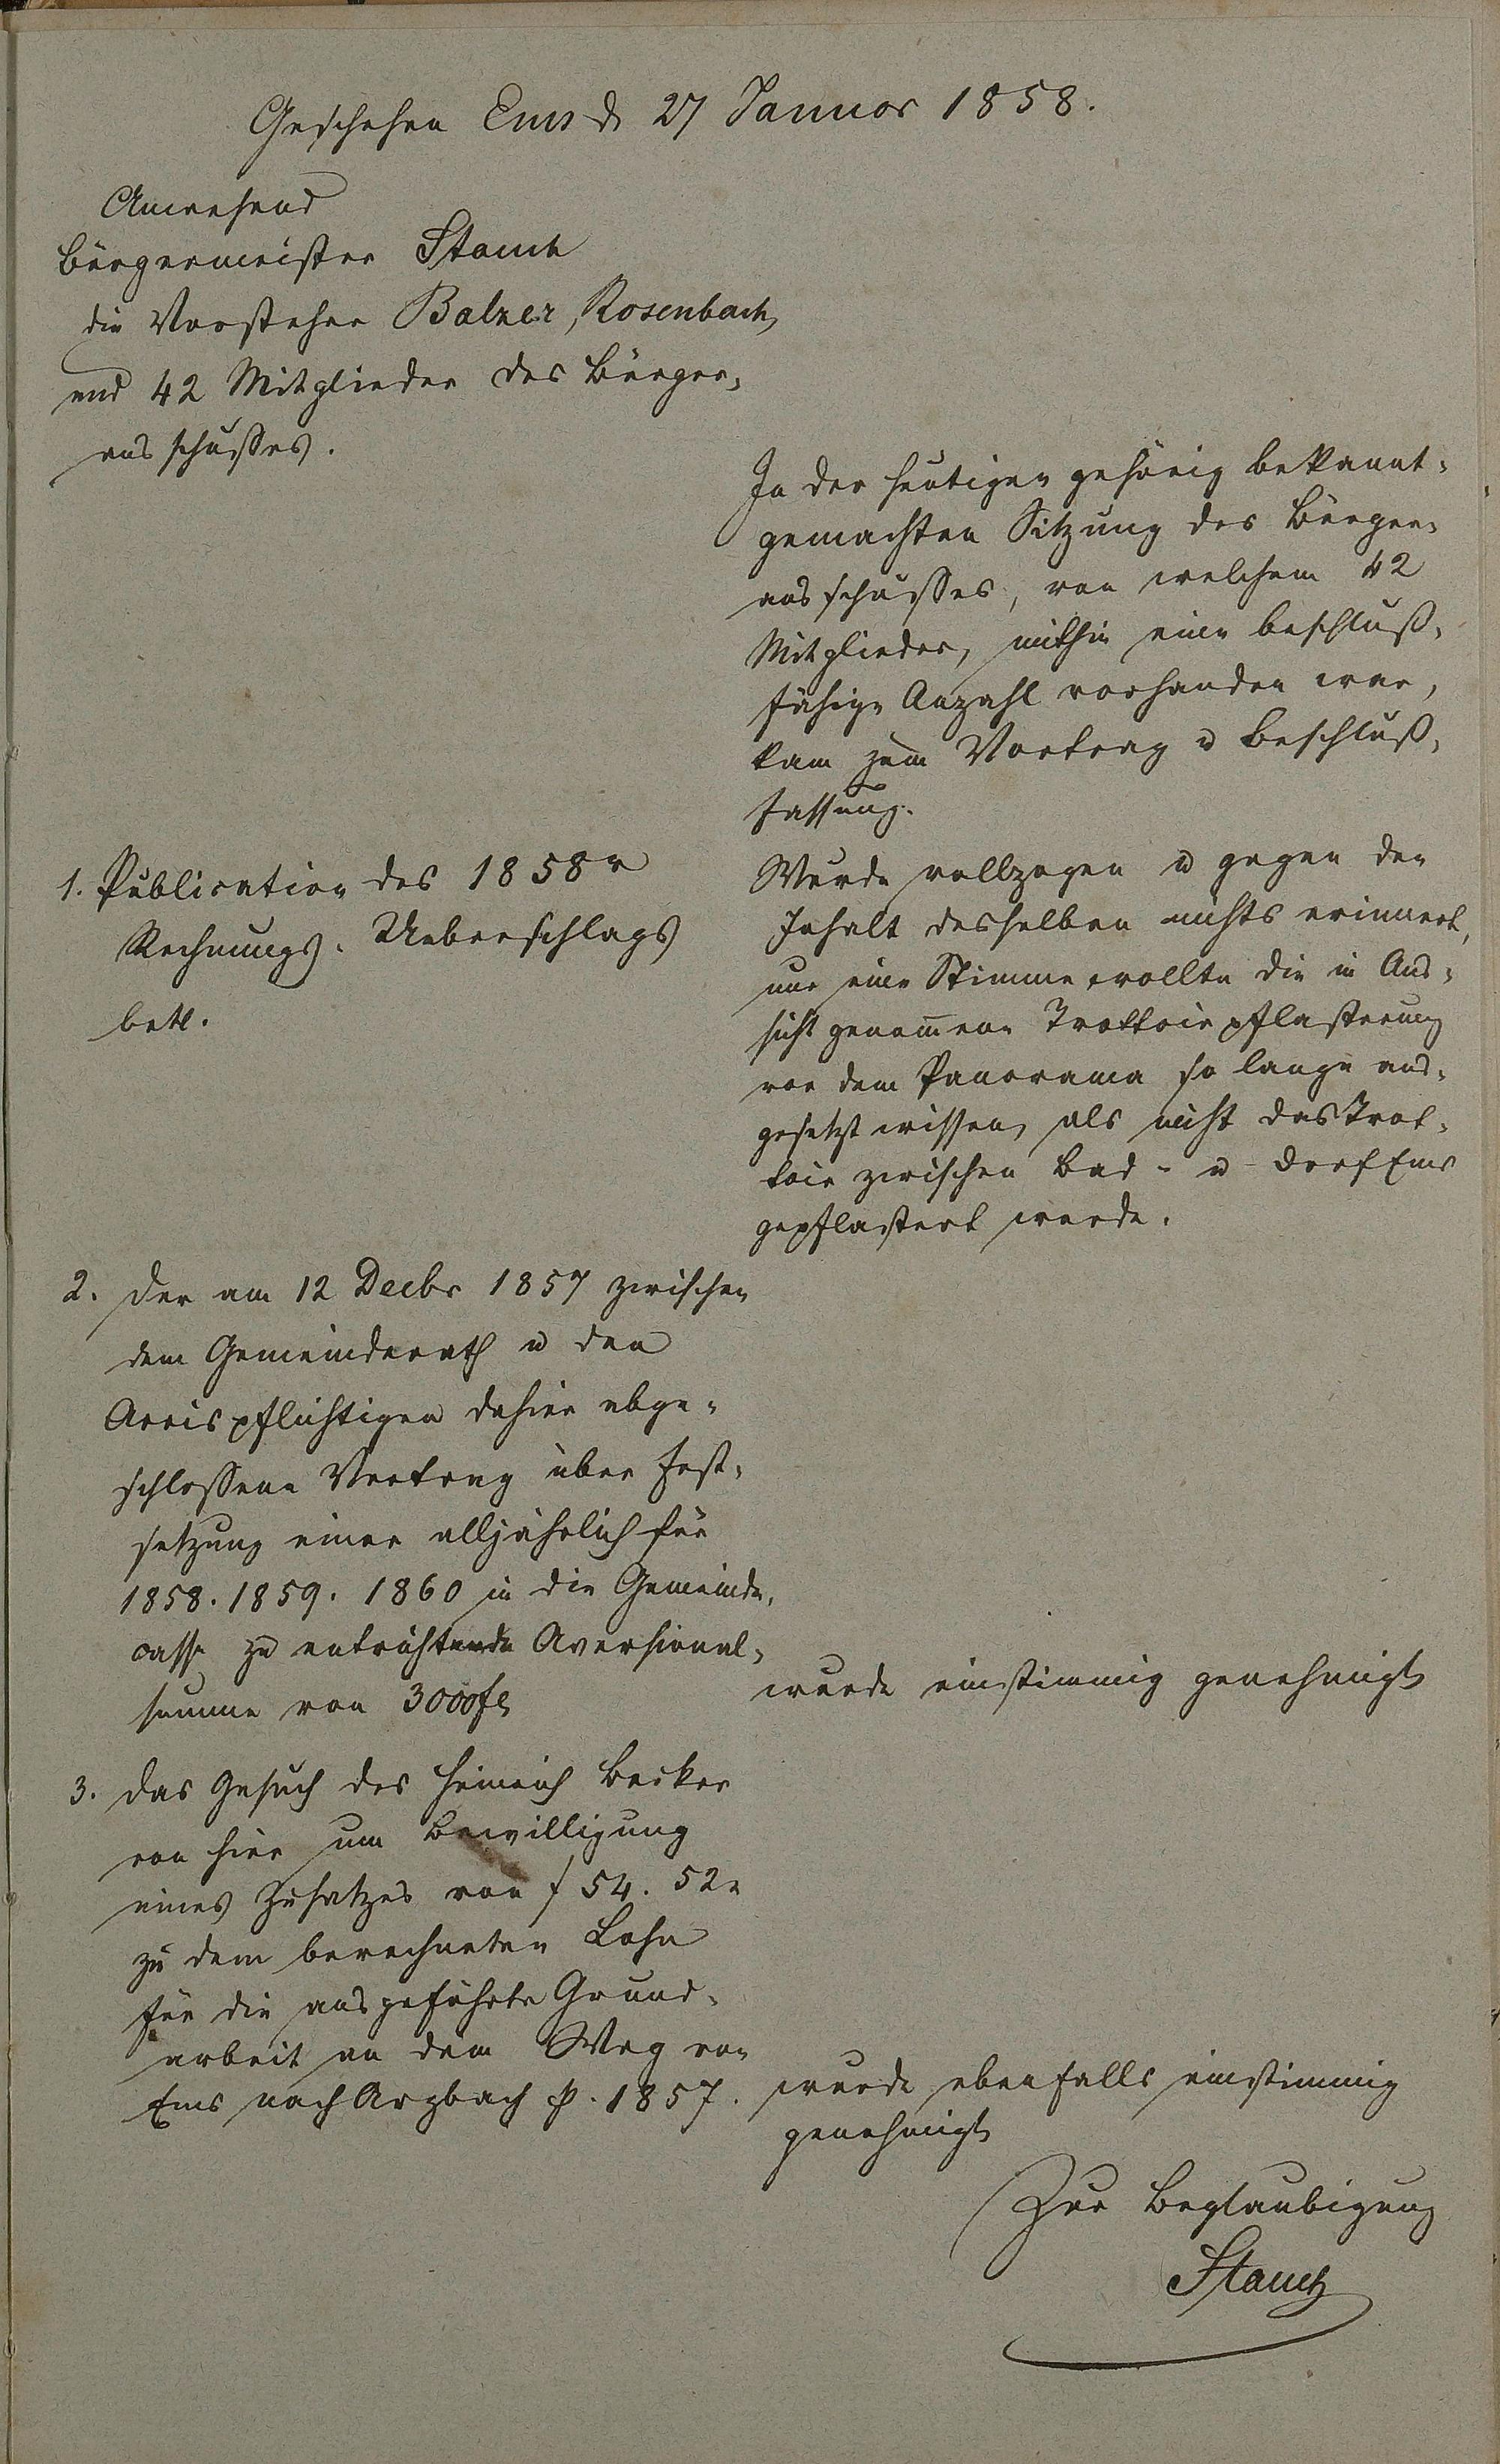 Geschehen Ems d 27 Januar 1858.
Anwesend
Bürgermeister Stauch
die Vorsteher Balzer, Rosenbach
und 42 Mitglieder des Bürger-
ausschusses.
In der heutigen gehörig bekannt-
gemachten Sitzung des Bürger-
ausschusses, von welchem 42
Mitglieder, mithin eine beschluß-
fähige Anzahl vorhanden war,
kam zum Vortrag u Beschluß-
fassung.
1. Publication des 1858r
Rechnungs-Ueberschlags
betr.
Wurde vollzogen u gegen den
Inhalt desselben nichts erinnert,
nur eine Stimme wollte die in Aus-
sicht genom̅ene Trottoirpflasterung
vor dem Panorama so lange aus-
gesetzt wissen, als nicht das Trot-
toir zwischen Bad- u Dorf Ems
gepflastert werde.
2. Der am 12 Decbr 1857 zwischen
dem Gemeinderath u den
Accispflichtigen dahier abge-
schlossene Vertrag über Fest-
setzung einer alljährlich für
1858. 1859. 1860 in die Gemeinde-
casse zu entrichtende Aversional-
summe von 3000 fl
wurde einstimmig genehmigt
3. Das Gesuch des Heinrich Becker
von hier um Bewilligung
eines Zusatzes von f 54. 52x
zu dem berechneten Lohn
für die ausgeführte Grund-
arbeit an dem Weg von
Ems nach Arzbach p. 1857.
wurde ebenfalls einstimmig
genehmigt
Zur Beglaubigung
Stauch